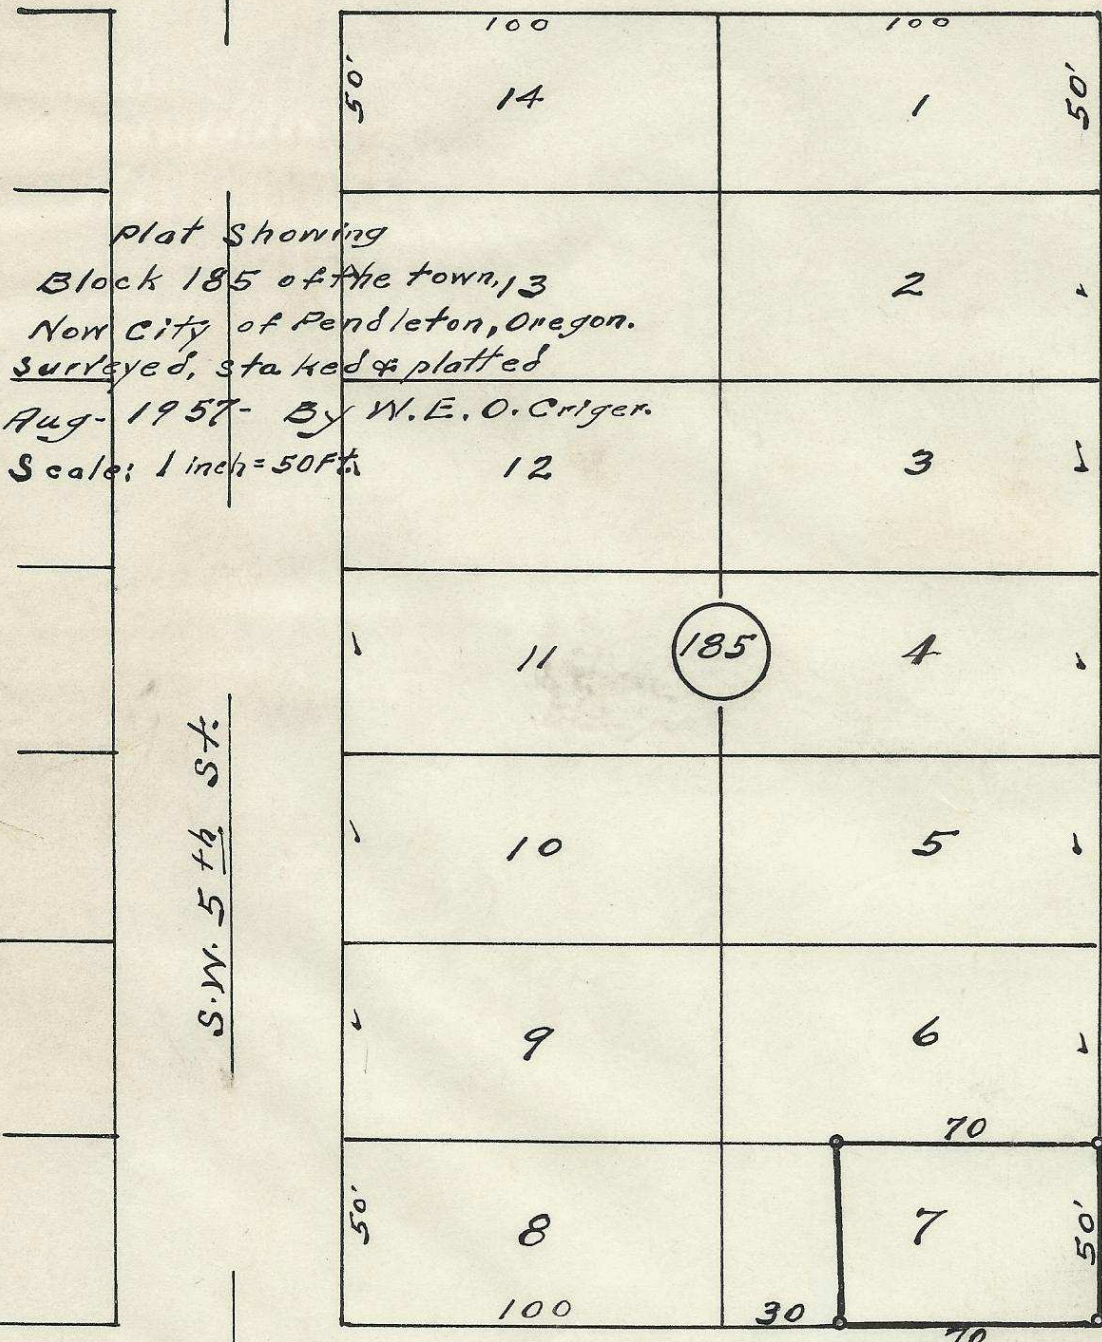 100 100
50' 14 1 50'
Plat Showing
Block 185 of the town, 13
2
Now City of Pendleton, Oregon.
Surveyed, staked & platted
Aug- 1957- By W.E.O. Criger.
Scale: 1 inch = 50Ft.
12 3
11 185 4
S.W. 5th St.
10 5
9 6
70
50' 8 7 50'
100 30
70